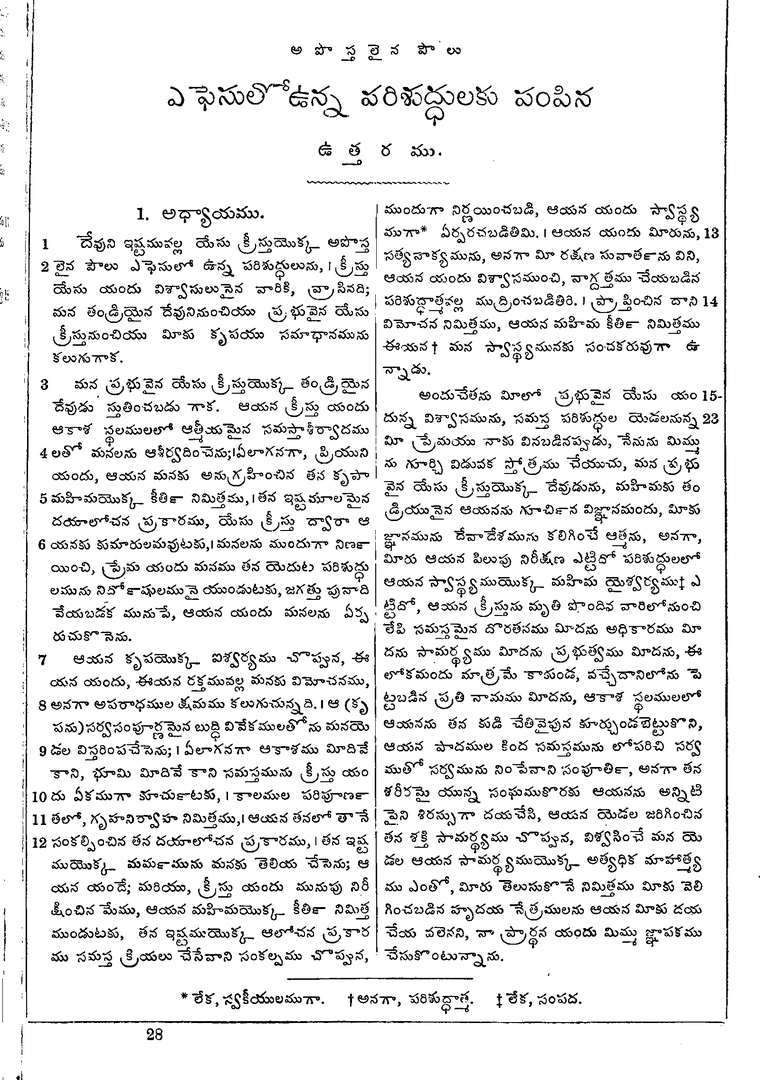 అ పొ స్త లై న పౌ లు
ఎ ఫెసులో ఉన్న పరిశుద్ధులకు పంపిన
ఉ త్త ర ము.
1. అధ్యాయము.
1 దేవుని ఇష్టమువల్ల యేసు క్రీస్తుయొక్క అపొస్త
2 లైన పౌలు ఎఫెసులో ఉన్న పరిశుద్ధులును, । క్రీస్తు
యేసు యందు విశ్వాసులునైన వారికి, వ్రాసినది;
మన తండ్రియైన దేవునినుంచియు ప్రభువైన యేసు
క్రీస్తునుంచియు మీకు కృపయు సమాధానమును
కలుగుగాక.
3 మన ప్రభువైన యేసు క్రీస్తుయొక్క తండ్రియైన
దేవుడు స్తుతించబడు గాక. ఆయన క్రీస్తు యందు
ఆకాశ స్థలములలో ఆత్మీయమైన సమస్తాశీర్వాదము
4 లతో మనలను ఆశీర్వదించెను;।ఏలాగనగా, ప్రియుని
యందు, ఆయన మనకు అనుగ్రహించిన తన కృపా
5 మహిమయొక్క కీర్తి నిమిత్తము, । తన ఇష్టమూలమైన
దయాలోచన ప్రకారము, యేసు క్రీస్తు ద్వారా ఆ
6 యనకు కుమారులమవుటకు, । మనలను ముందుగా నిర్ణ
యించి, ప్రేమ యందు మనము తన యెదుట పరిశుద్ధు
లమును నిర్దోషులమునై యుండుటకు, జగత్తు పునాది
వేయబడక మునుపే, ఆయన యందు మనలను ఏర్ప
రుచుకొనెను.
7 ఆయన కృపయొక్క ఐశ్వర్యము చొప్పున, ఈ
యన యందు, ఈయన రక్తమువల్ల మనకు విమోచనము,
8 అనగా అపరాధముల క్షమము కలుగుచున్నది. । ఆ (కృ
పను) సర్వసంపూర్ణమైన బుద్ధి వివేకములతోను మనయె
9 డల విస్తరింపచేసెను; । ఏలాగనగా ఆకాశము మీదివే
కాని, భూమి మీదివే కాని సమస్తమును క్రీస్తు యం
10 దు ఏకముగా కూర్చుటకు, । కాలముల పరిపూర్ణ
11 తలో, గృహనిర్వాహ నిమిత్తము, । ఆయన తనలో తానే
12 సంకల్పించిన తన దయాలోచన ప్రకారము, । తన ఇష్ట
ముయొక్క మర్మమును మనకు తెలియ చేసెను; ఆ
యన యందే; మరియు, క్రీస్తు యందు మునుపు నిరీ
క్షించిన మేము, ఆయన మహిమయొక్క కీర్తి నిమిత్త
ముండుటకు, తన ఇష్టముయొక్క ఆలోచన ప్రకార
ము సమస్త క్రియలు చేసేవాని సంకల్పము చొప్పున,
ముందుగా నిర్ణయించబడి, ఆయన యందు స్వాస్థ్య
ముగా* ఏర్పరచబడితిమి. । ఆయన యందు మీరును, 13
సత్యవాక్యమును, అనగా మీ రక్షణ సువార్తను విని,
ఆయన యందు విశ్వాసముంచి, వాగ్దత్తము చేయబడిన
పరిశుద్ధాత్మవల్ల ముద్రించబడితిరి. । ప్రాప్తించిన దాని 14
విమోచన నిమిత్తము, ఆయన మహిమ కీర్తి నిమిత్తము
ఈయన† మన స్వాస్థ్యమునకు సంచకరువుగా ఉ
న్నాడు.
అందుచేతను మీలో ప్రభువైన యేసు యం 15-
దున్న విశ్వాసమును, సమస్త పరిశుద్ధుల యెడలనున్న 23
మీ ప్రేమయు నాకు వినబడినప్పుడు, నేనును మిమ్ము
ను గూర్చి విడువక స్తోత్రము చేయుచు, మన ప్రభు
వైన యేసు క్రీస్తుయొక్క దేవుడును, మహిమకు తం
డ్రియునైన ఆయనను గూర్చిన విజ్ఞానమందు, మీకు
జ్ఞానమును దేవాదేశమును కలిగించే ఆత్మను, అనగా,
మీరు ఆయన పిలుపు నిరీక్షణ ఎట్టిదో పరిశుద్ధులలో
ఆయన స్వాస్థ్యముయొక్క మహిమ యైశ్వర్యము‡ ఎ
ట్టిదో, ఆయన క్రీస్తును మృతి పొందిన వారిలోనుంచి
లేపి సమస్తమైన దొరతనము మీదను అధికారము మీ
దను సామర్థ్యము మీదను ప్రభుత్వము మీదను, ఈ
లోకమందు మాత్రమే కాకుండ, వచ్చేదానిలోను పె
ట్టబడిన ప్రతి నామము మీదను, ఆకాశ స్థలములలో
ఆయనను తన కుడి చేతివైపున కూర్చుండబెట్టుకొని,
ఆయన పాదముల కింద సమస్తమును లోపరిచి సర్వ
ముతో సర్వమును నింపేవాని సంపూర్తి, అనగా తన
శరీరమై యున్న సంఘముకొరకు ఆయనను అన్నిటి
పైని శిరస్సుగా దయచేసి, ఆయన యెడల జరిగించిన
తన శక్తి సామర్థ్యము చొప్పున, విశ్వసించే మన యె
డల ఆయన సామర్థ్యముయొక్క అత్యధిక మాహాత్మ్య
ము ఎంతో, మీరు తెలుసుకొనే నిమిత్తము మీకు వెలి
గించబడిన హృదయ నేత్రములను ఆయన మీకు దయ
చేయ వలెనని, నా ప్రార్థన యందు మిమ్ము జ్ఞాపకము
చేసుకొంటున్నాను.
* లేక, స్వకీయులముగా. † అనగా, పరిశుద్ధాత్మ. ‡ లేక, సంపద.
28